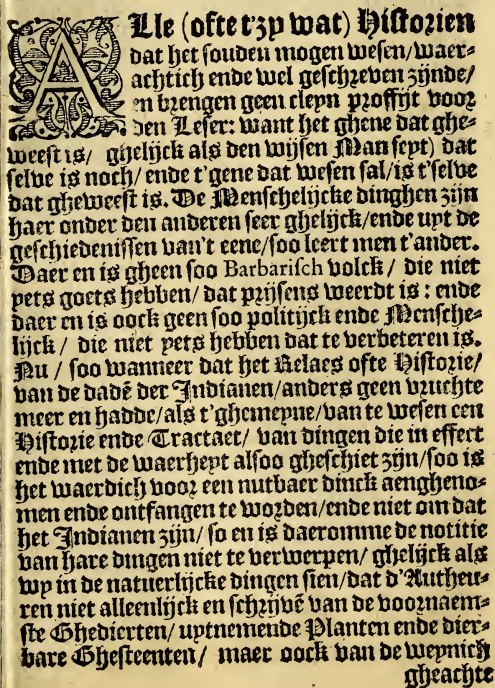 ALle (ofte t'zp wat) Historien
dat het souden mogen wesen/waer-
achtich ende wel geschreven zijnde/
en brengen geen cleyn proffijt voor
den Leser: want het ghene dat ghe-
weest is/ ghelijck als den wijsen Man seyt) dat
selve is noch/ ende t'gene dat wesen sal/is t'selve
dat gheweest is. De Menschelijcke dinghen zijn
haer onder den anderen seer ghelijck/ende uyt de
geschiedenissen van't eene/soo leert men t'ander.
Daer en is gheen soo Barbarisch volck/ die niet
yets goets hebben/ dat prijsens weerdt is: ende
daer en is oock geen soo politijck ende Mensche-
lijck/ die niet yets hebben dat te verbeteren is.
Nu/ soo wanneer dat het Relaes ofte Historie/
van de dadē der Indianen/anders geen vruchte
meer en hadde/als t'ghemeyne/van te wesen een
Historie ende Tractaet/ van dingen die in effect
ende met de waerheyt alsoo gheschiet zijn/soo is
het waerdich voor een nutbaer dinck aengheno-
men ende ontfangen te worden/ende niet om dat
het Indianen zijn/ so en is daeromme de notitie
van hare dingen niet te verwerpen/ ghelijck als
wy in de natuerlijcke dingen sien/dat d'Autheu-
ren niet alleenlijck en schrijvē van de voornaem-
ste Ghedierten/ uytnemende Planten ende dier-
bare Ghesteenten/ maer oock van de weynich
gheachte